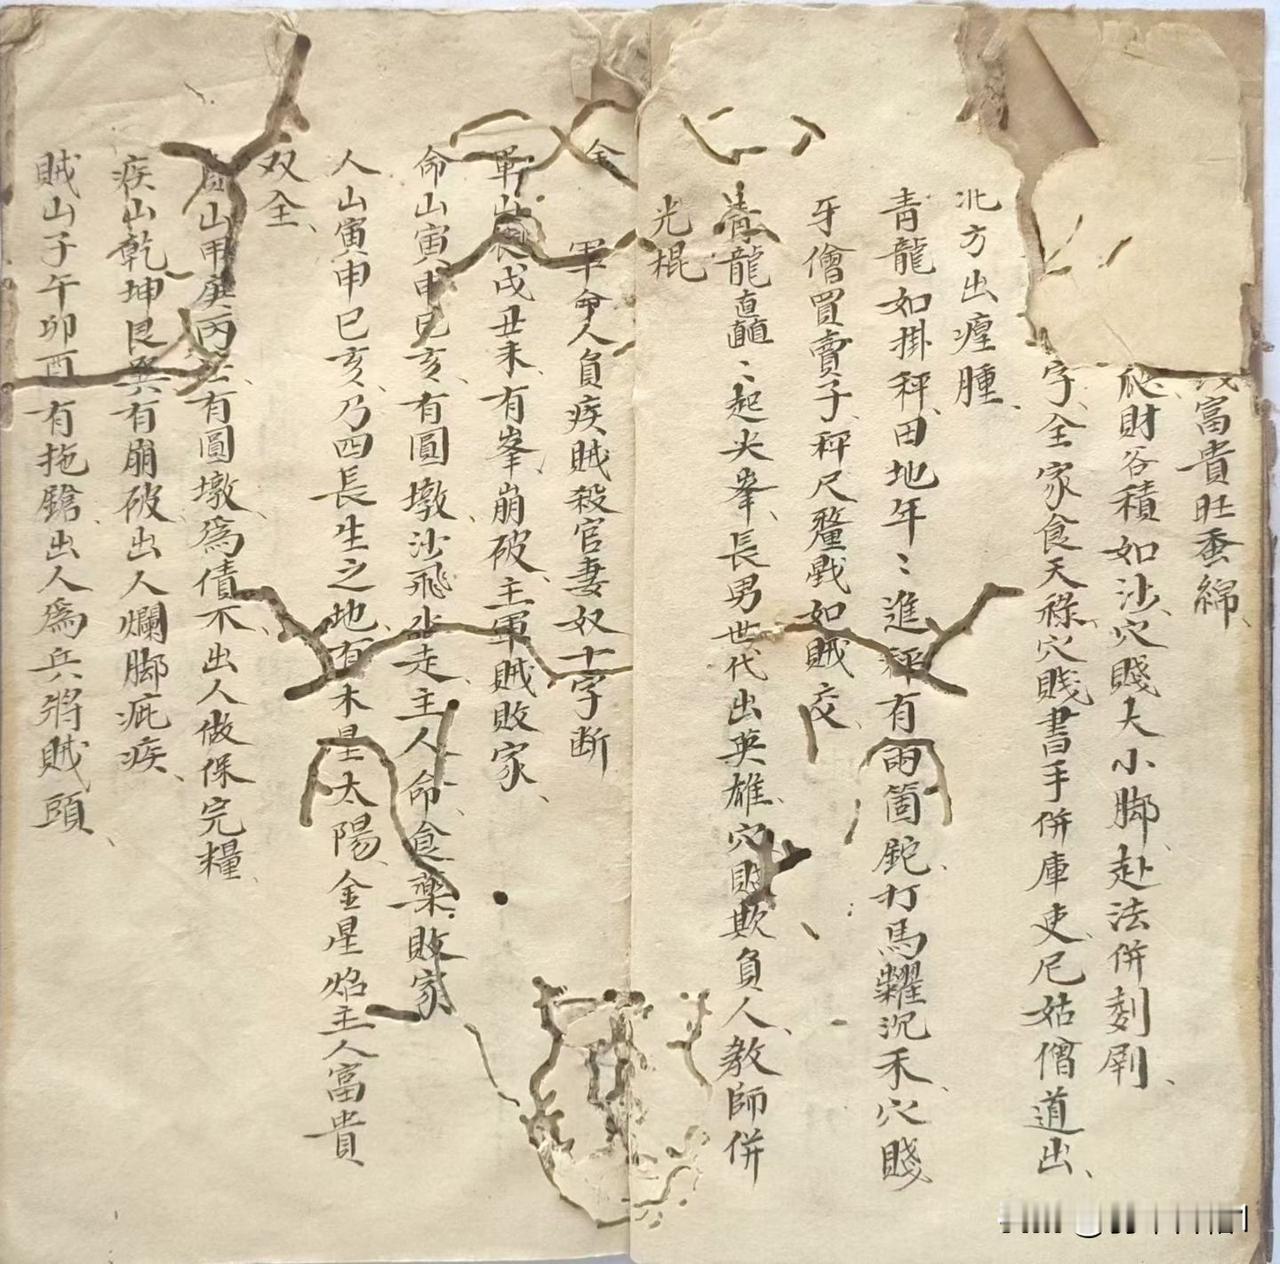 富貴旺蚕綿、
財谷積如沙、穴賤大小脚、赴法併刻剮、
字、全家食天祿、穴賤書手併庫吏、尼姑僧道出、
北方出瘽腫、
青龍如掛秤、田地年〻進、秤有兩箇鉈、打馬糶沉禾、穴賤
牙儈買賣子、秤尺釐戥如賊交、
青龍直顛〻、起尖峯、長男世代出英雄、穴賤欺負人、教師併
光棍
全
軍命人負疾賊殺官妻奴十字断
軍山辰戌丑未、有峯崩破、主軍賊敗家、
命山寅申巳亥、有圓墩沙飛出走、主人命食藥、敗家
人山寅申巳亥、乃四長生之地、有木星太陽、金星焰、主人富貴
双全、
山甲庚丙壬、有圓墩、爲債不、出人做保完糧、
疾山乾坤艮巽、有崩破、出人爛脚疵疾、
賊山子午卯酉、有拖鎗、出人爲兵將賊頭、